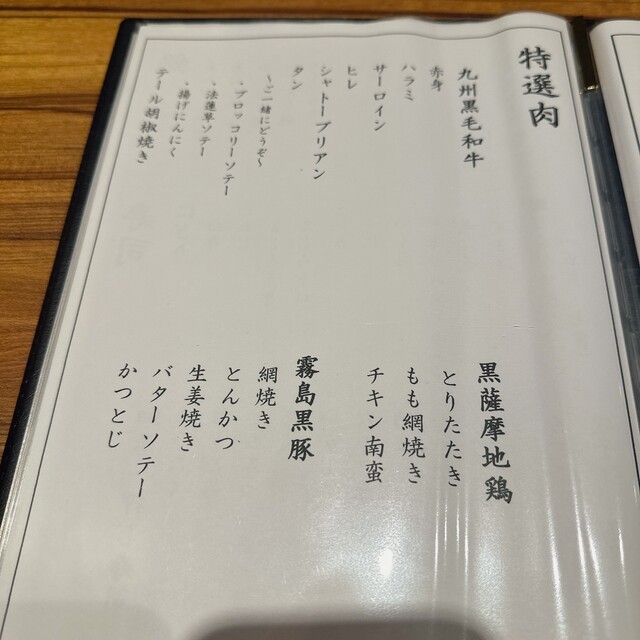 特選肉
九州黒毛和牛
赤身
ハラミ
サーロイン
ヒレ
シャトーブリアン
タン
～ご一緒にどうぞ～
・ブロッコリーソテー
・法蓮草ソテー
・揚げにんにく
テール胡椒焼き
黒薩摩地鶏
とりたたき
もも網焼き
チキン南蛮
霧島黒豚
網焼き
とんかつ
生姜焼き
バターソテー
かつとじ